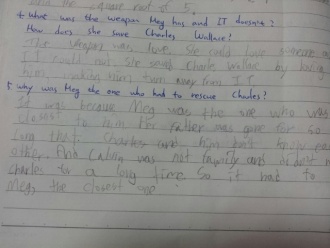 the square root of 5.
* What was the weapon Meg has and IT doesn't?
How does she save Charles Wallace?
The weapon was love. She could love someone and
IT could not she saved Charles Wallace by loving
him making them turn away from IT.
* Why was Meg the one who had to rescue Charles?
It was because Meg was the one who was
closest to him the father was gone for so
long that Charles and him don't know each
other. And Calvin was not family and didn't
charles for a long time. So it had to
Meg, the closest one.